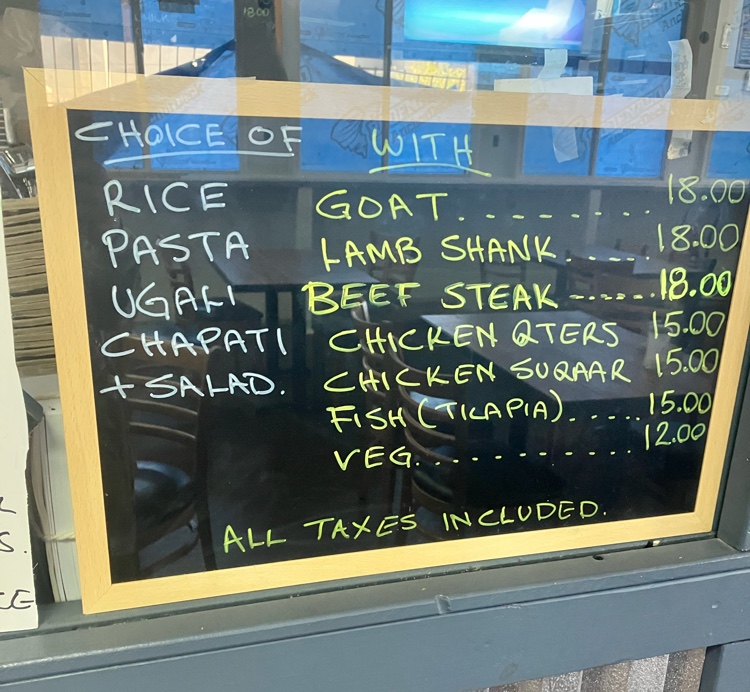 CHOICE OF WITH
RICE GOAT......... 18.00
PASTA LAMB SHANK..... 18.00
UGALI BEEF STEAK ------ 18.00
CHAPATI CHICKEN QTERS 15.00
+ SALAD. CHICKEN SUQAAR 15.00
FISH (TILAPIA)..... 15.00
VEG............ 12.00
ALL TAXES INCLUDED.